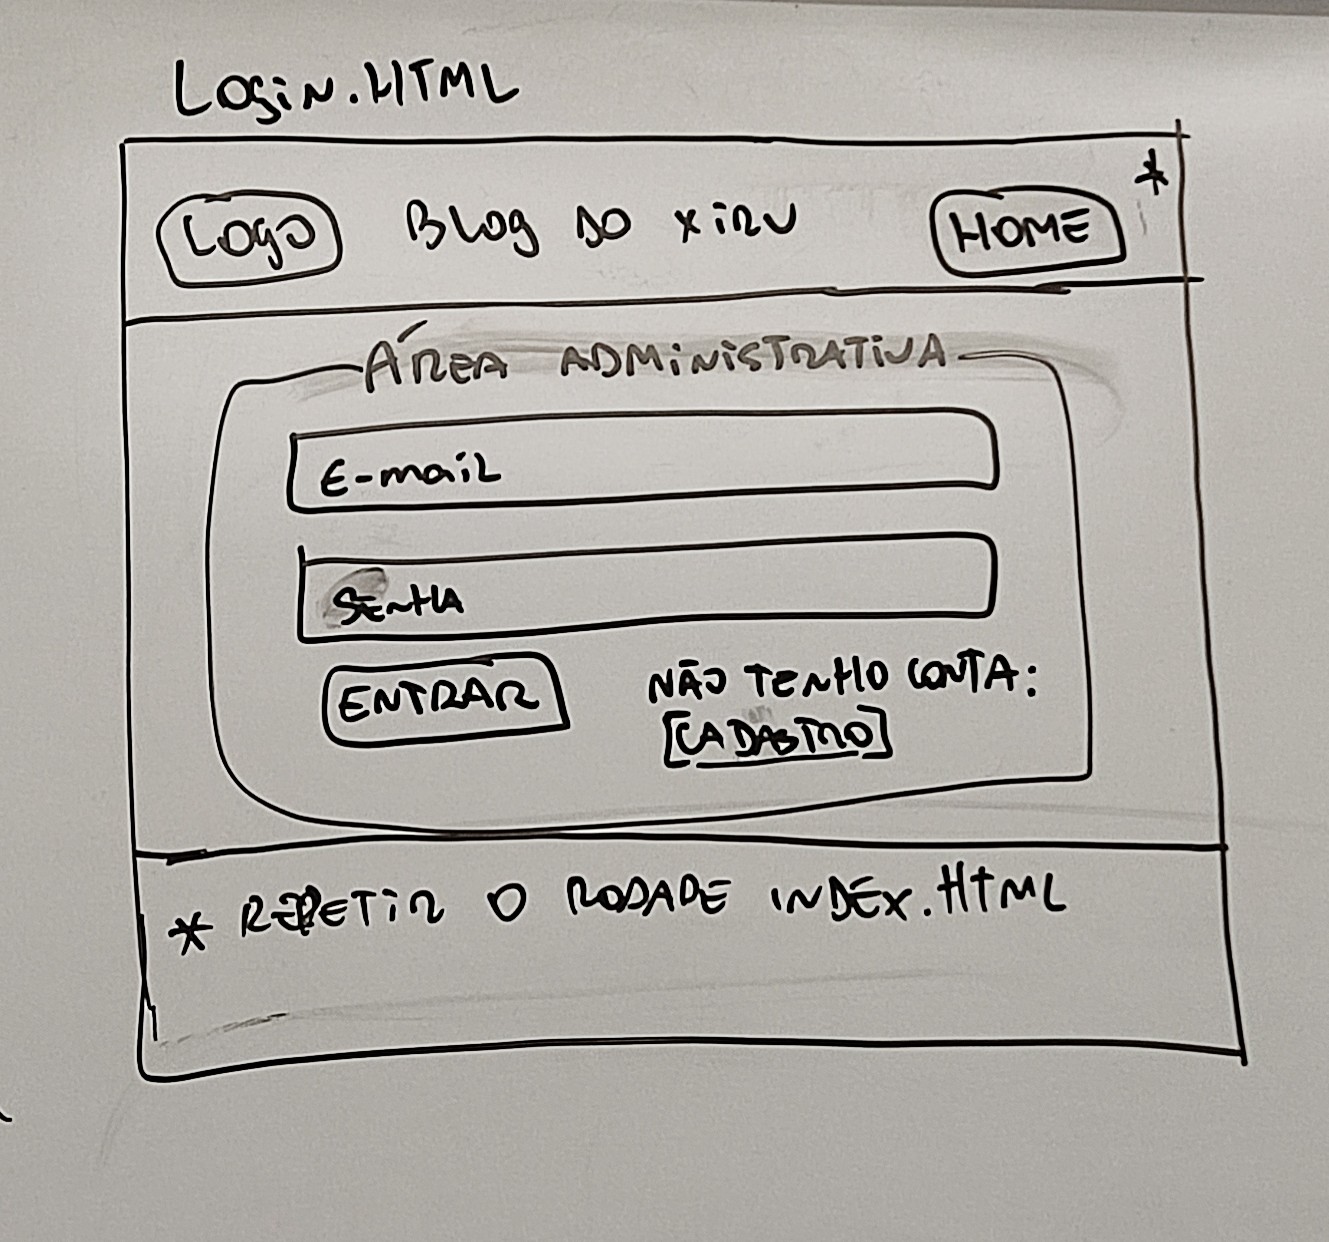 LOGIN.HTML
*
LOGO BLOG DO XIRU HOME
ÁREA ADMINISTRATIVA
E-MAIL
SENHA
ENTRAR NÃO TENHO CONTA:
[CADASTRO]
* REPETIR O RODAPE INDEX.HTML